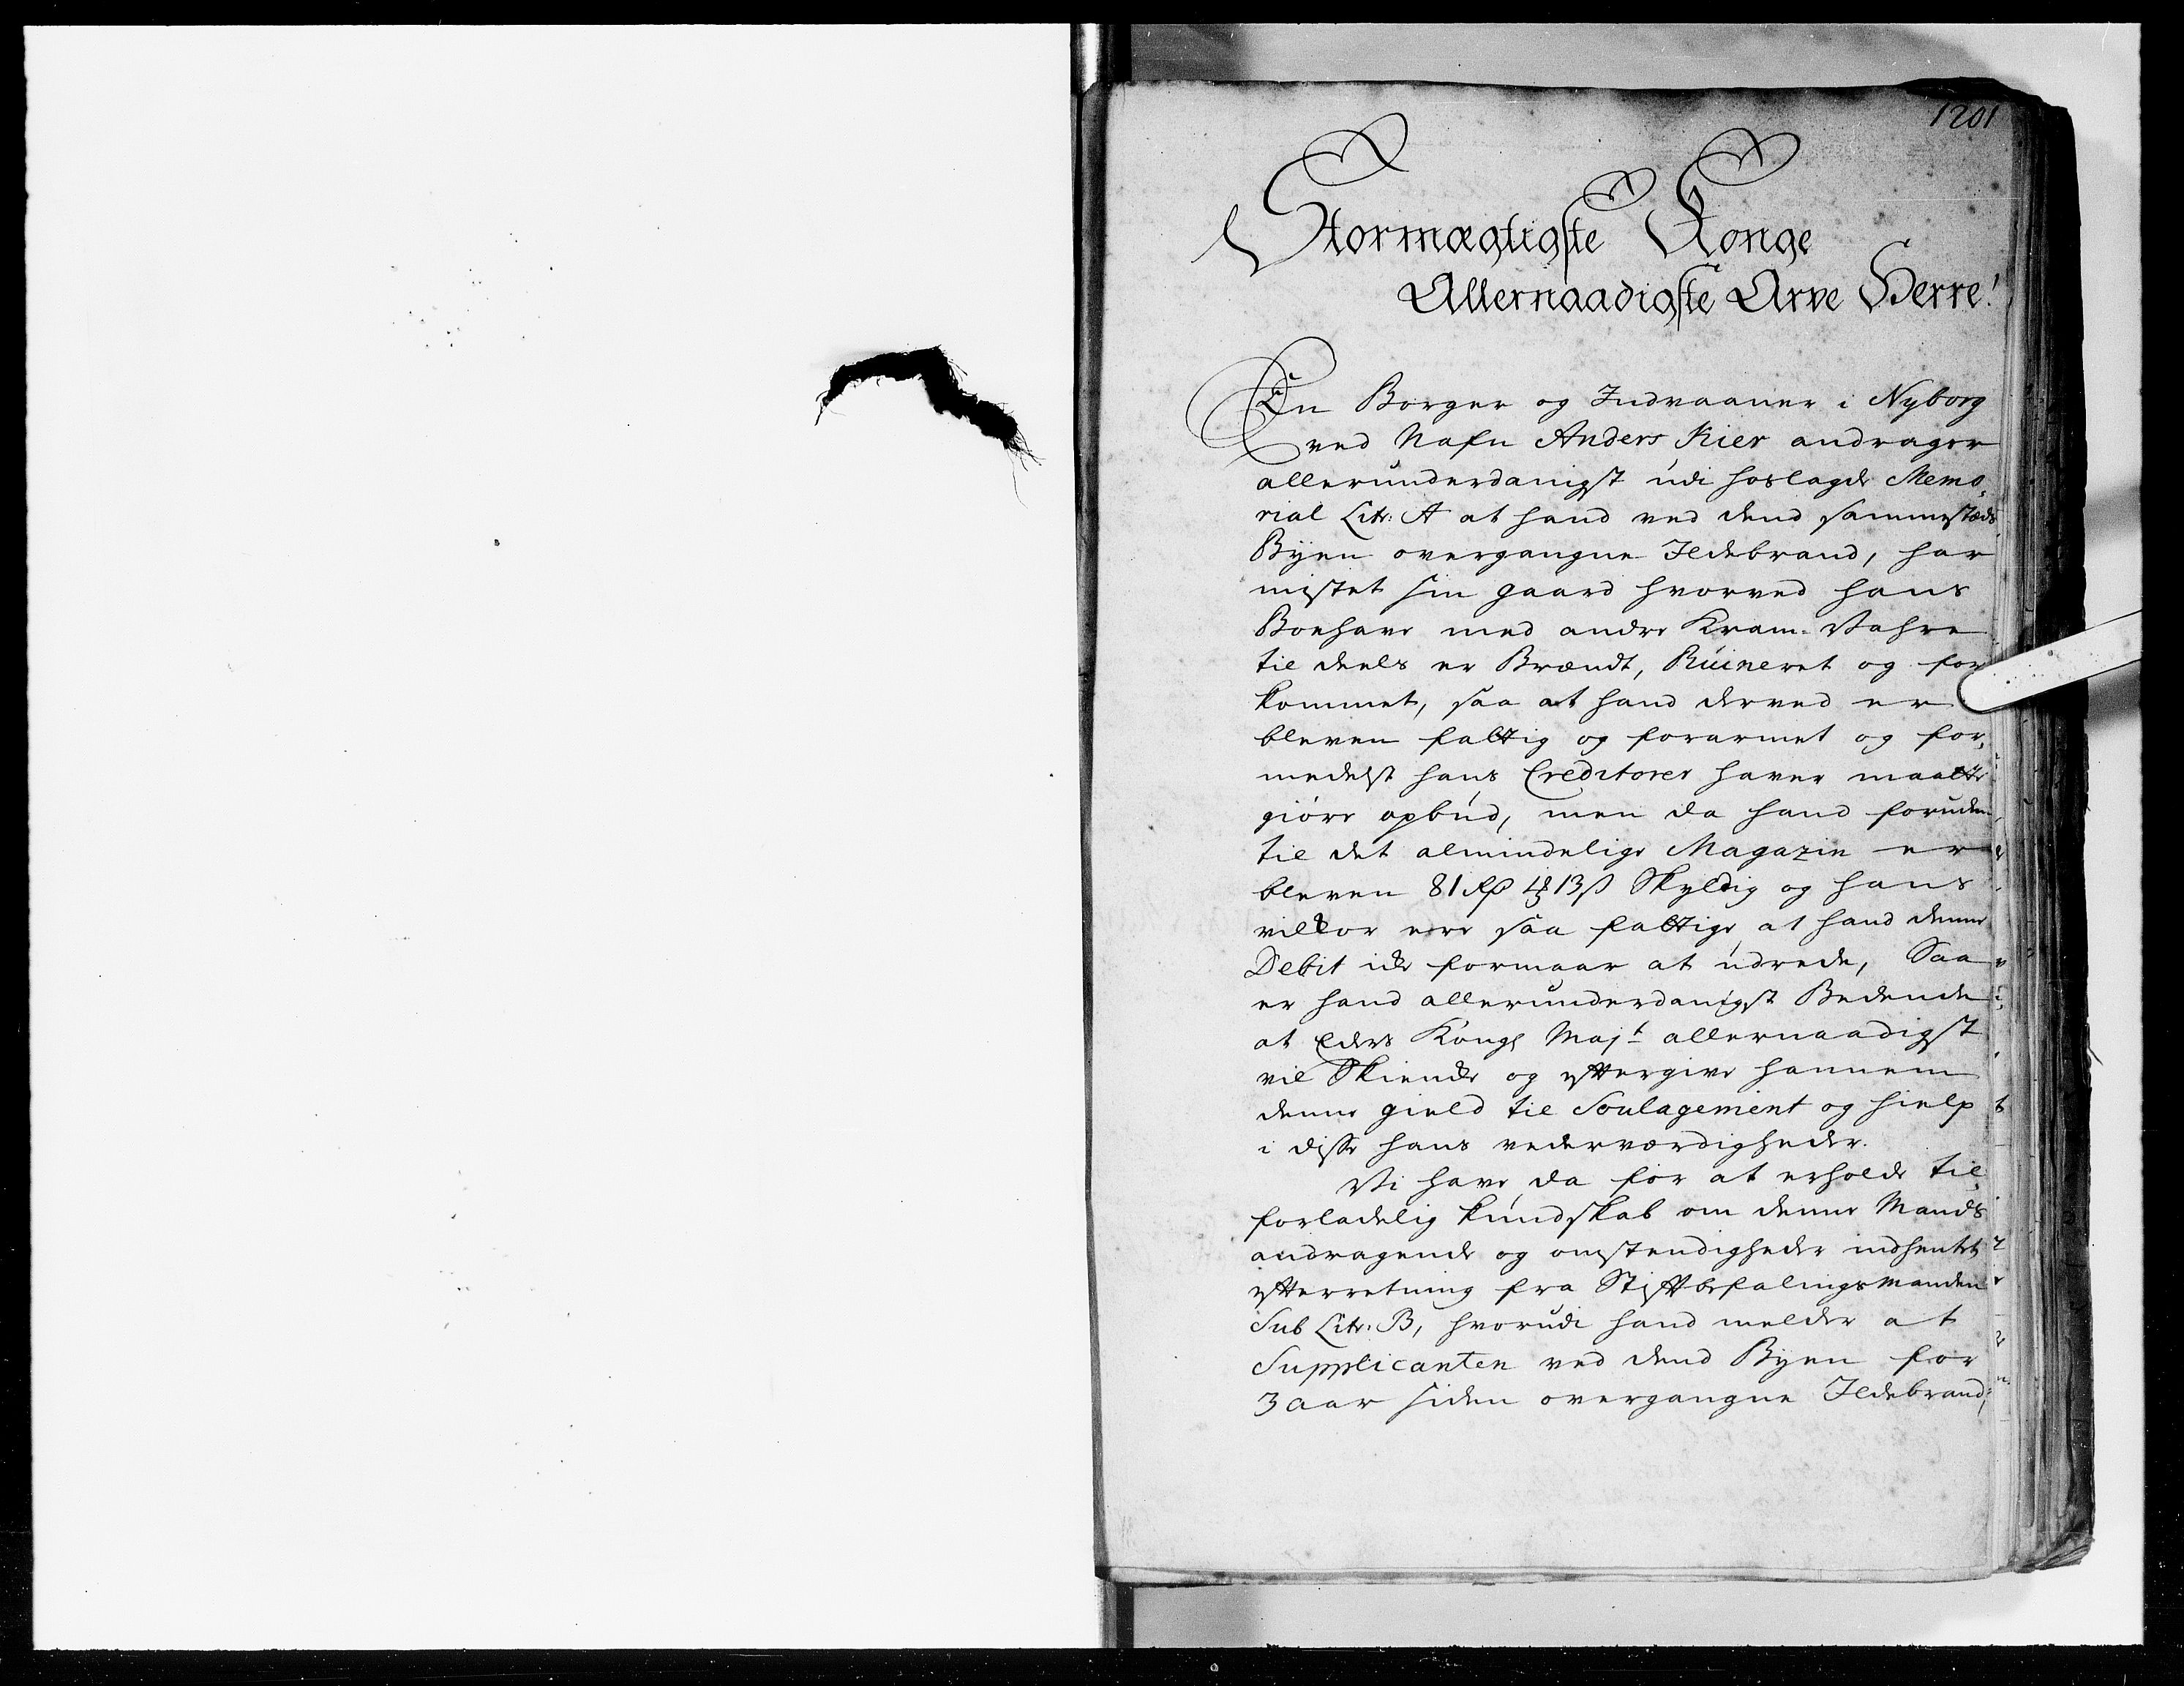 1201
Stormægtigste Konge
Allernaadigste Arve Herre!
En Borger og Indvaaner i Nyborg
ved Nafn Anders Kier andrager
allerunderdanigst udi hoslagde Memo,
rial Litr: A at hand ved dend sammestæds
Byen overgangne Ildebrand, har
mistet sin gaard hvorved hans
Boehave med andre Kram-Vahre
til deels er Brændt, Ruineret og for
kommet, saa at hand derved er
bleven fattig og forarmet og for,
medelst hans Creditorer haver maatte
giøre opbud, men da hand foruden
til det almindelige Magazin er
bleven 81 Rd 4 13 ß Skyldig og hans
vilkor ere saa fattige, at hand denne
Debit icke formaar at udrede, Saa
er hand allerunderdanigst Bedende
at Eders Kongl Majt allernaadigst
vil Skiencke og eftergive hannem
denne gield til Soulagement og hielp
i disse hans vederværdigheder.
Vi have da for at erholde til,
forladelig kundskab om denne Mands
andragende og omstendigheder indhentet
efterretning fra Stiftbefalingsmanden
Sub Litr: B, hvorudi hand melder at
Supplicanten ved dend Byen for
3 aar siden overgangne Ildebrand,